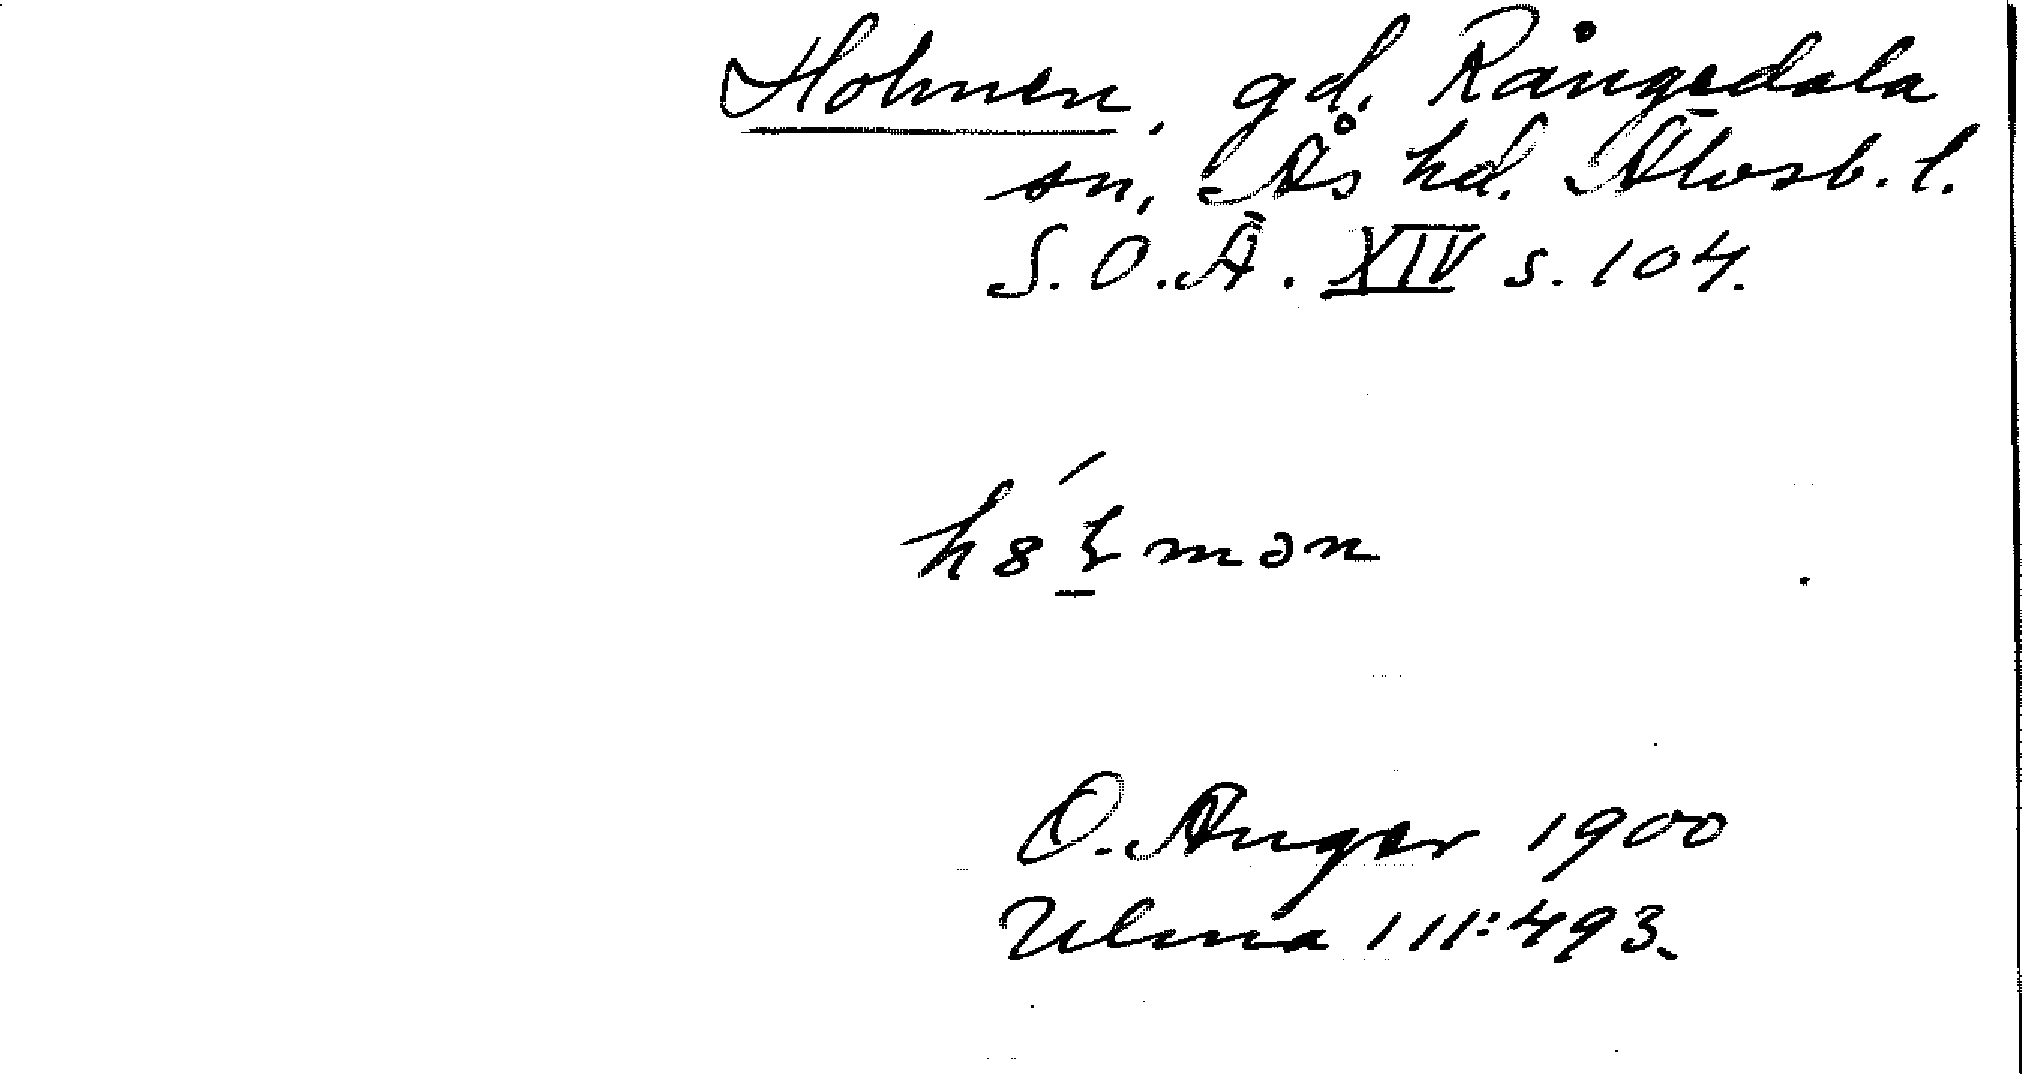 Holmen, gd. Rångedala
sn, Ås hd. Älvsb. l.
S.O.Ä. XIV s. 104.
O. Anger 1900
Ulma 111:493.